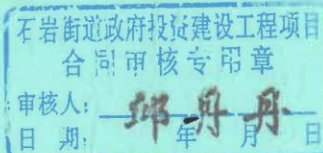 石岩街道政府投资建设工程项目
合同审核专用章
审核人：邱丹丹
日 期： 年 月 日